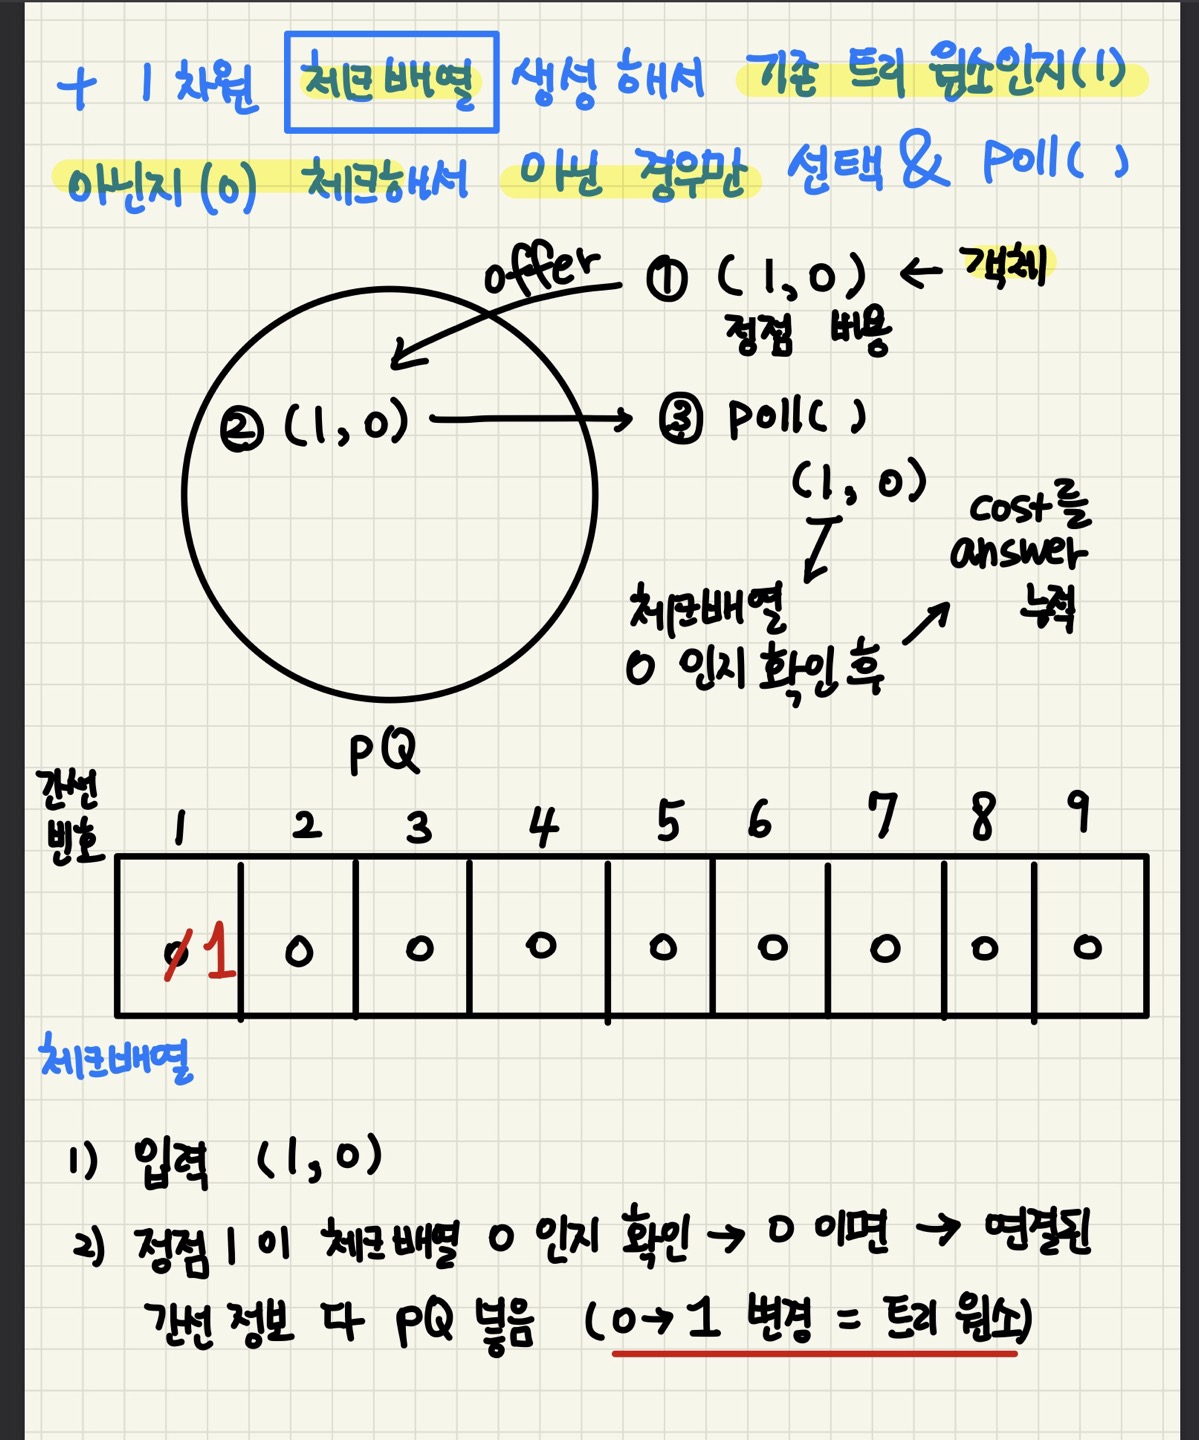 + 1차원 체크배열 생성해서 기존 트리 원소인지(1)
아닌지(0) 체크해서 아닌 경우만 선택 & Poll( )
offer ① (1,0) ← 객체
정점 비용
② (1,0) → ③ Poll( )
(1,0)
cost를
answer
누적
체크배열
0 인지 확인 후
PQ
간선
번호
1 2 3 4 5 6 7 8 9
0 1 0 0 0 0 0 0 0 0
체크배열
1) 입력 (1,0)
2) 정점 1 이 체크배열 0 인지 확인 → 0 이면 → 연결된
간선 정보 다 PQ 넣음 (0→1 변경 = 트리 원소)